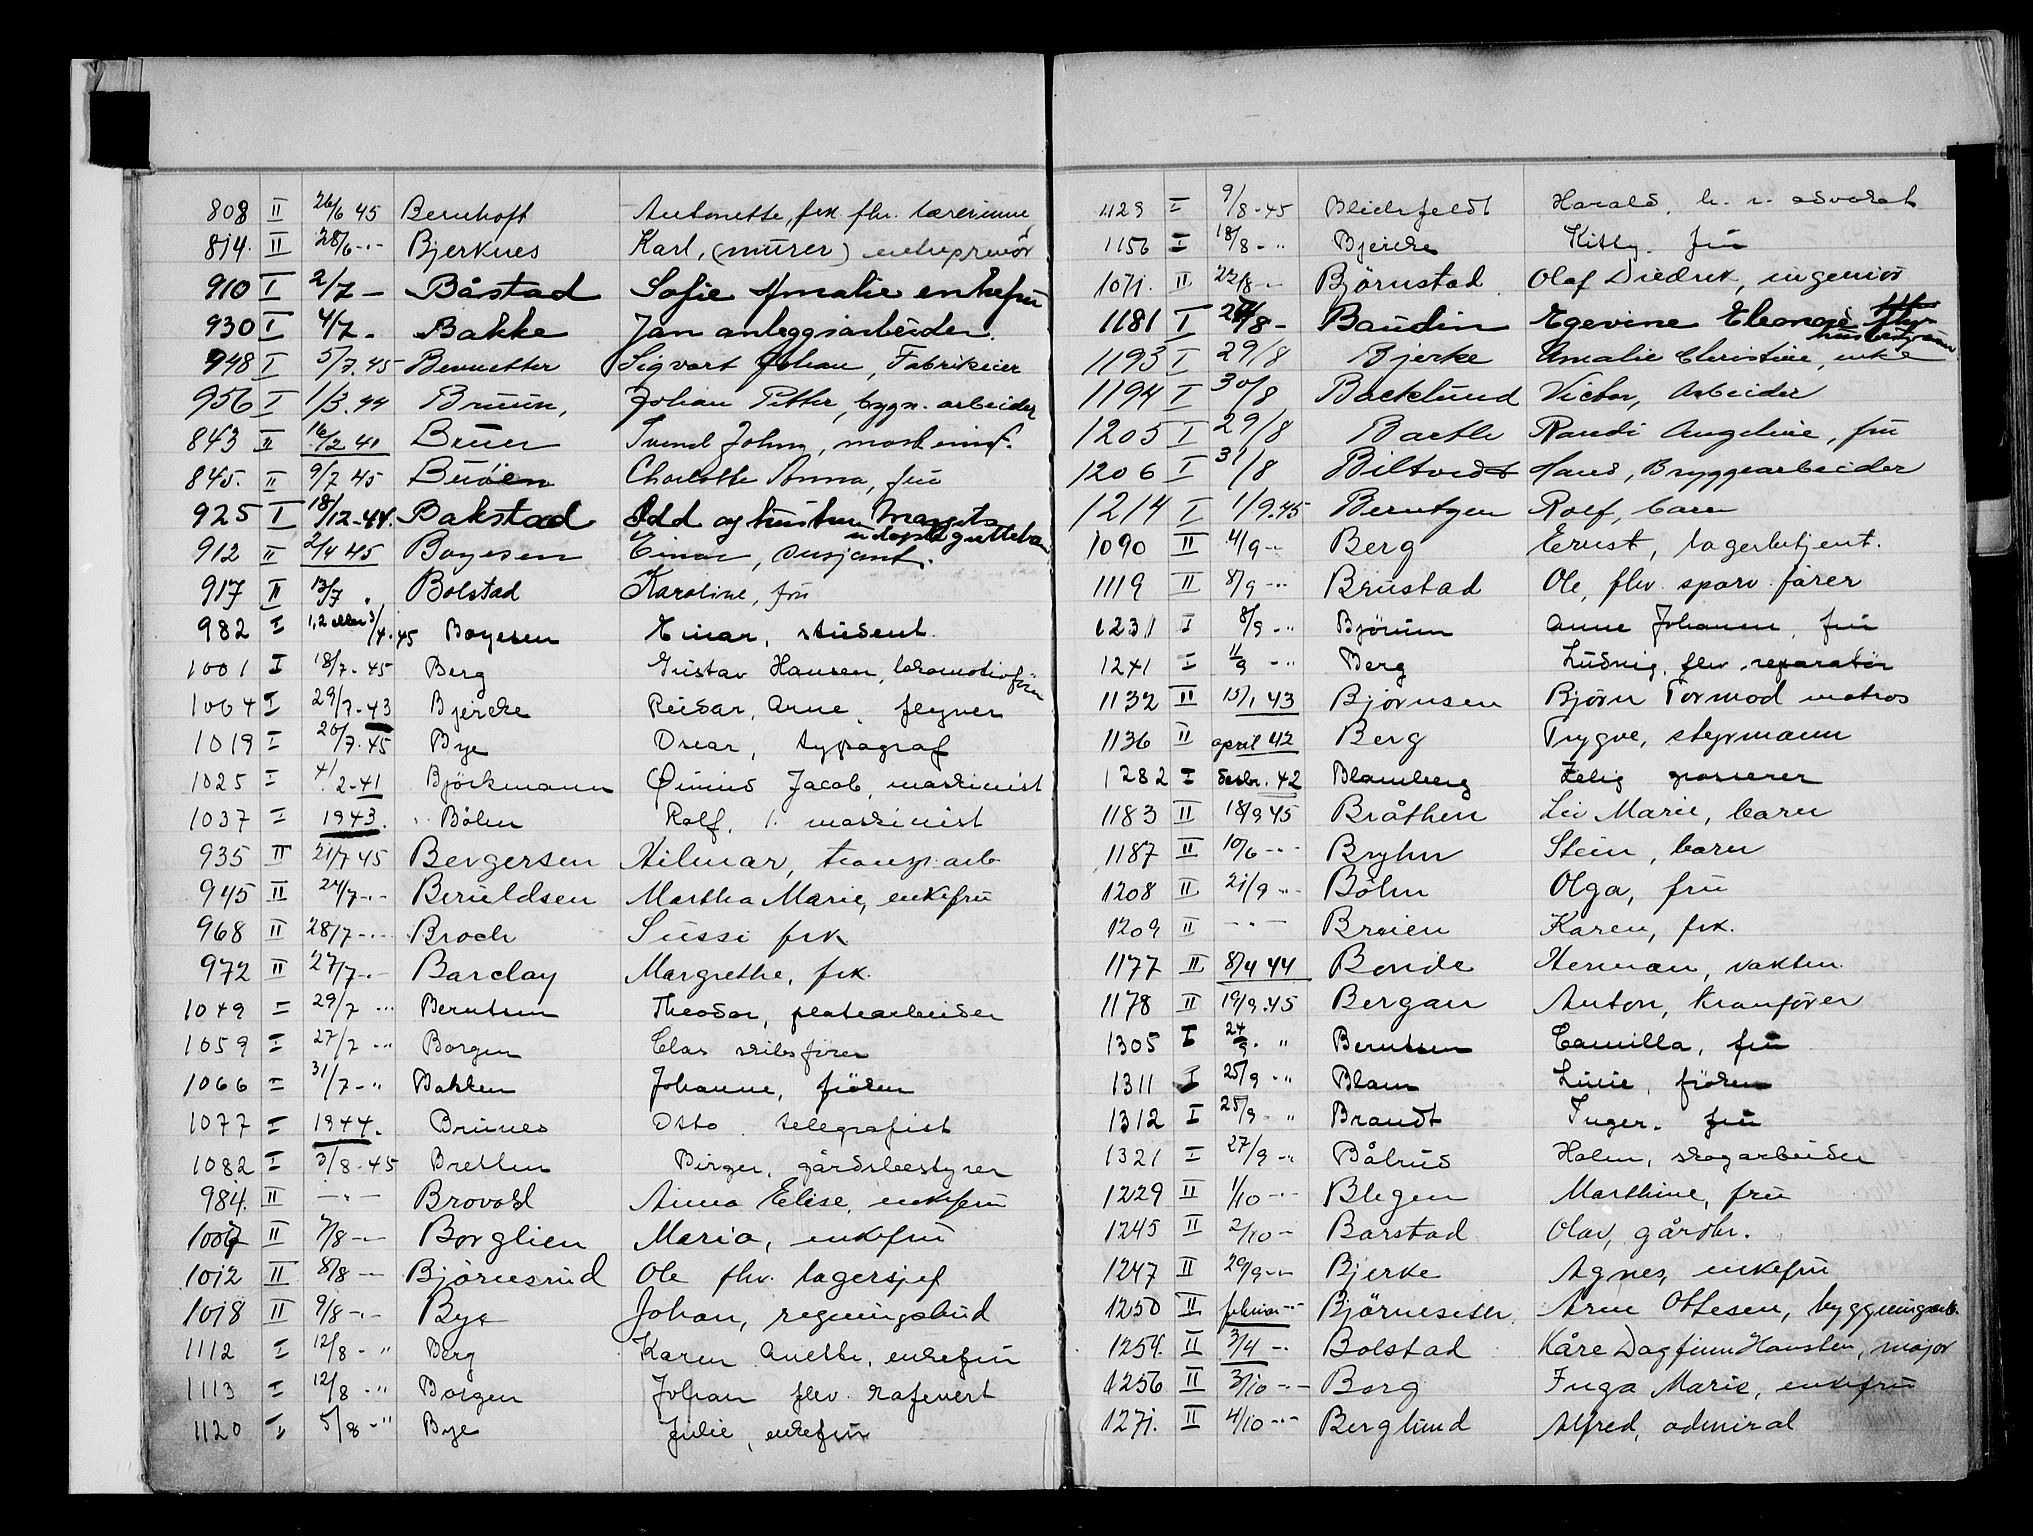 808 II 26/6 45 Bernhoft Antonette, frk. fhv. lærerinne
814. II 28/6 -"- Bjerknes Karl, (murer) entreprenör
910 I 2/7 - Båstad Sofie Amalie enkefru
930 I 4/7 - Bakke Jan anleggsarbeider.
948 I 5/7.45 Bennetter Sigvart Johan, Fabrikeier
956 I 1/3.44 Bruun, Johan Petter, bygn. arbeider
843 II 16/2 41 Bruer Svend Johny, maskinist.
845. II 9/7 45 Buöen Charlotte Anna, fru
925 I 18/12-44. Bakstad Odd og hustru Margits
udöpte guttebarn
912 II 2/4 45 Boyesen Einar, sersjant.
917 II 13/7 " Bolstad Karoline, fru
982 I 1,2 eller 3/4.45 Boyesen Einar, student.
1001 I 18/7-45 Berg Gustav Hansen, lokomotivförer
1004 I 29/7-43 Bjercke Reidar, Arne, flyver
1019 I 20/7-45 Bye Oscar, typograf
1025 I 4/2-41 Björkmann Jacob, maskinist
1037 I 1943. Böhn Rolf, 1. maskinist
935 II 21/7 45 Bergersen Hilmar, transp. arb
945 II 24/7 -"- Beruldsen Martha Marie, enkefru
968 II 28/7 -"- Broch Sussi frk
972 II 27/7 -"- Barclay Margrethe, frk.
1049 I 29/7 -"- Berntsen Theodor, platearbeider
1059 I 27/7 -"- Borgen Clas skibsförer
1066 I 31/7 -" Bakken Johanne, fröken
1077 I 1944. Brunes Otto telegrafist
1082 I 3/8-45 Bretten Birger, gårdsbestyrer
984. II -"- Brovold Anna Elise, enkefru
1007 II 7/8 -"- Borglien Maria, enkefru
1012 II 8/8 -"- Björnerud Ole fhv. lagersjef
1018 II 9/8 -"- Bye Johan, regningsbud
1112 I 12/8 -" Berg Karen Anette, enkefru
1113 I 12/8 -" Borgen Johan flev. kafevert
1120 I 5/8 -" Bye Julie, enkefru
1129 I 9/8-45 Blichfeldt Harald, h. r. advokat
1156 I 18/8 -" Bjercke Kitty. fru
1071. II 22/8 -"- Björnstad Olaf Diedrik, ingeniör
1181 I 27/8 - Baudin Egevine Eleonore
husbestyrerinne
1193 I 29/8 Bjerke Amalie Christine, enke
1194 I 30/8 Backlund Victor, Arbeider
1205 I 29/8 Bartle Randi Angeline, fru
1206 I 31/8 Biltvedt Hans, Bryggearbeider
1214 I 1/9.45 Berntzen Rolf, barn
1090 II 4/9 -"- Berg Ernst, lagerbetjent.
1119 II 8/9 -"- Brustad Ole, fhv. sporv. förer
1231 I 8/9 -" Björum Anne Johanne, fru
1241 I 11/9 -" Berg Ludvig, flev. reparatör
1132 II 15/1 43 Björnsen Björn Tormod matros
1136 II april 42 Berg Trygve, styrmann
1282 I desbr. 42 Blomberg Zelig grosserer
1183 II 18/9 45 Bråthen Liv Marie, barn
1187 II 10/6 -"- Bryhn Stein, barn
1208 II 21/9 -"- Böhn Olga, fru
1209 II -"- Broien Karen, frk.
1177 II 8/4 44 Bonde Herman, vaktm.
1178 II 19/9.45 Bergan Anton, kranförer
1305 I 24/9 - " Berntsen Camilla, fru
1311 I 25/9 -" Blam Linie, fröken
1312 I 25/9 - " Brandt Inger. fru
1321 I 27/9 -" Bålrud Holm, skogarbeider
1229 II 1/10 -"- Blegen Marthine, fru
1245 II 2/10 -"- Barstad Olav, gårdbr.
1247 II 29/9 -"- Bjerke Agnes, enkefru
1250 II februar -"- Björneseth Arne Ottesen, byggningsarb.
1254. II 3/4 -"- Bolstad Kåre Dagfinn Hansten, major
1256 II 3/10 -"- Borg Inga Marie, enkefru
1271. II 4/10 -"- Berglund Alfred, admiral